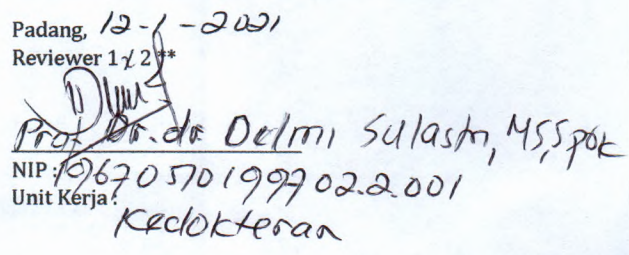 Padang, 12-1-2021
Reviewer 1/2 **
Prof Dr. dr Delmi Sulastri, MS, SpGK
NIP : 19670570199702.2.001
Unit Kerja :
Kedokteran